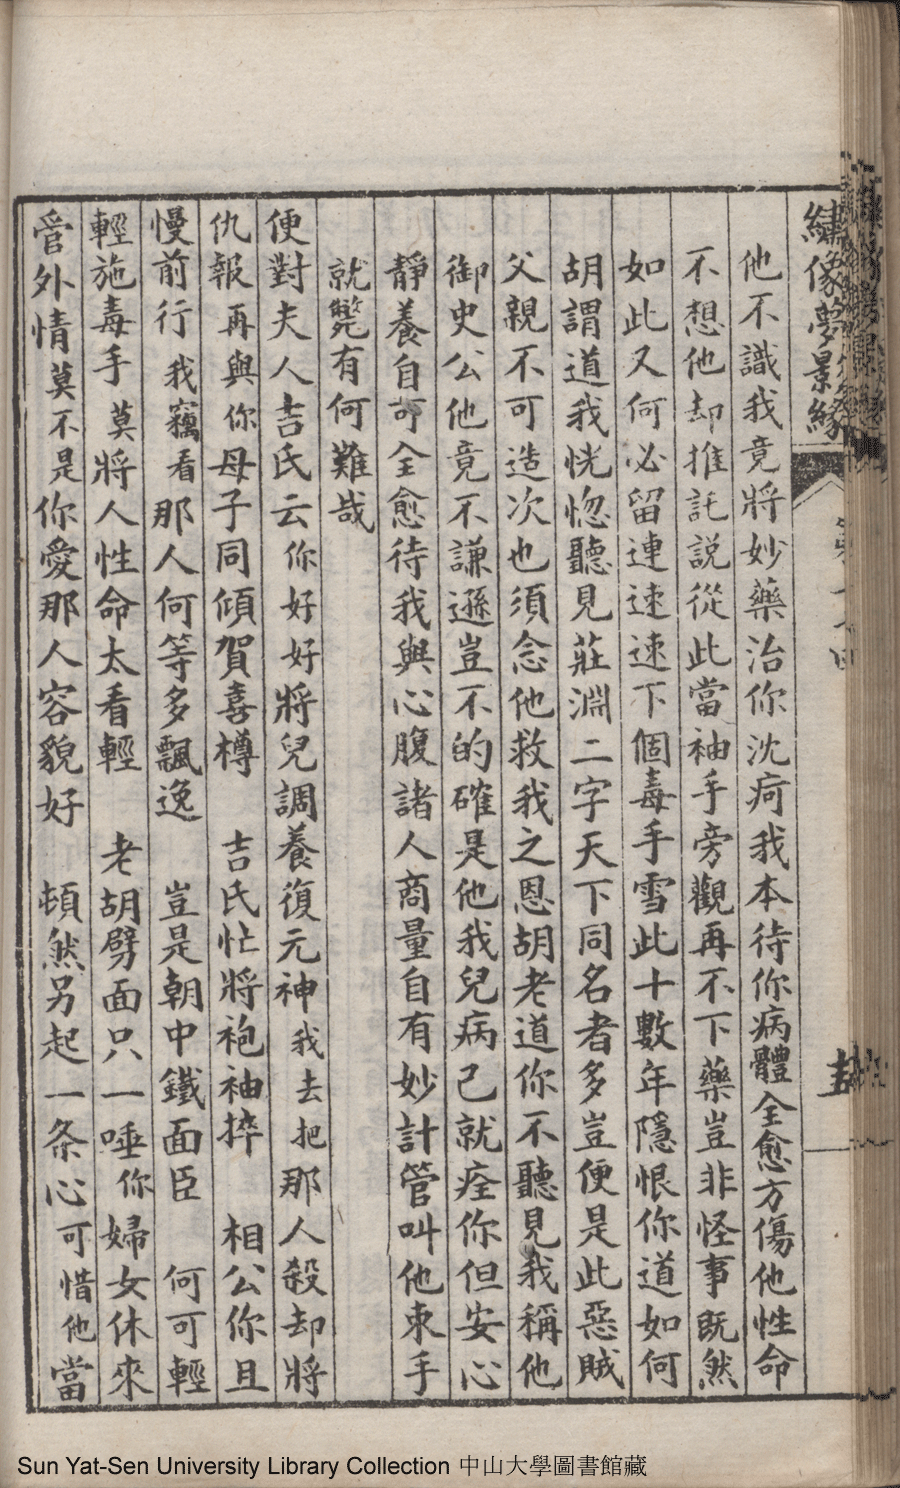 繡像夢景緣
他不識我竟將妙藥治你沈疴我本待你病體全愈方傷他性命
不想他却推託説從此當袖手旁觀再不下藥豈非怪事既然
如此又何必留連速速下個毒手雪此十數年隱恨你道如何
胡謂道我恍惚聽見莊淵二字天下同名者多豈便是此惡賊
父親不可造次也須念他救我之恩胡老道你不聽見我稱他
御史公他竟不謙遜豈不的確是他我兒病己就痊你但安心
靜養自可全愈待我與心腹諸人商量自有妙計管叫他束手
就斃有何難哉
便對夫人吉氏云你好好將兒調養復元神我去把那人殺却將
仇報再與你母子同傾賀喜樽 吉氏忙將袍袖捽 相公你且
慢前行我竊看那人何等多飄逸 豈是朝中鐵面臣 何可輕
輕施毒手莫將人性命太看輕 老胡劈面只一唾你婦女休來
管外情莫不是你愛那人容貌好 頓然另起一条心可惜他當
Sun Yat-Sen University Library Collection 中山大學圖書館藏